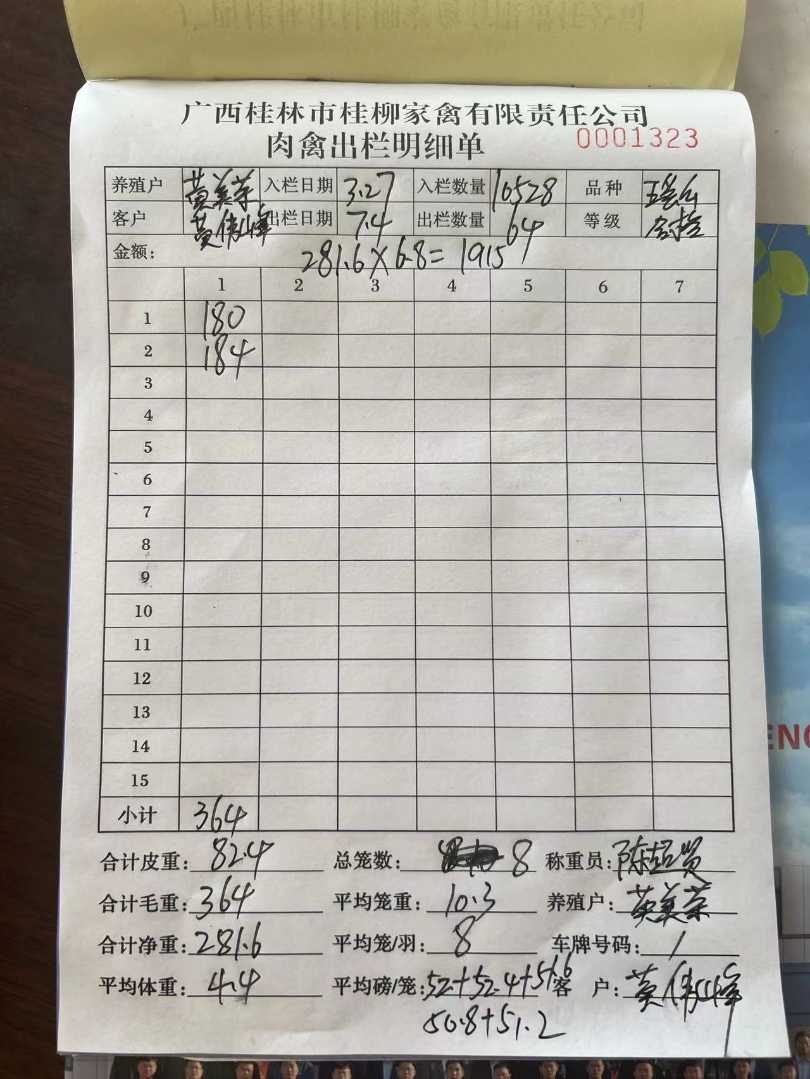 广西桂林市桂柳家禽有限责任公司
肉禽出栏明细单 0001323
养殖户 黄美荣 入栏日期 3.27 入栏数量 10528 品种
客户 黄伟峰 出栏日期 7.4 出栏数量 64 等级
金额: 281.6×6.8=1915
1 2 3 4 5 6 7
1 180
2 184
3
4
5
6
7
8
9
10
11
12
13
14
15
小计 364
合计皮重: 82.4 总笼数: 8 称重员: 陈超贤
合计毛重: 364 平均笼重: 10.3 养殖户: 黄美荣
合计净重: 281.6 平均笼/羽: 8 车牌号码: /
平均体重: 4.4 平均磅/笼: 52+52.4+51.6 客 户: 黄伟峰
50.8+51.2
ENG